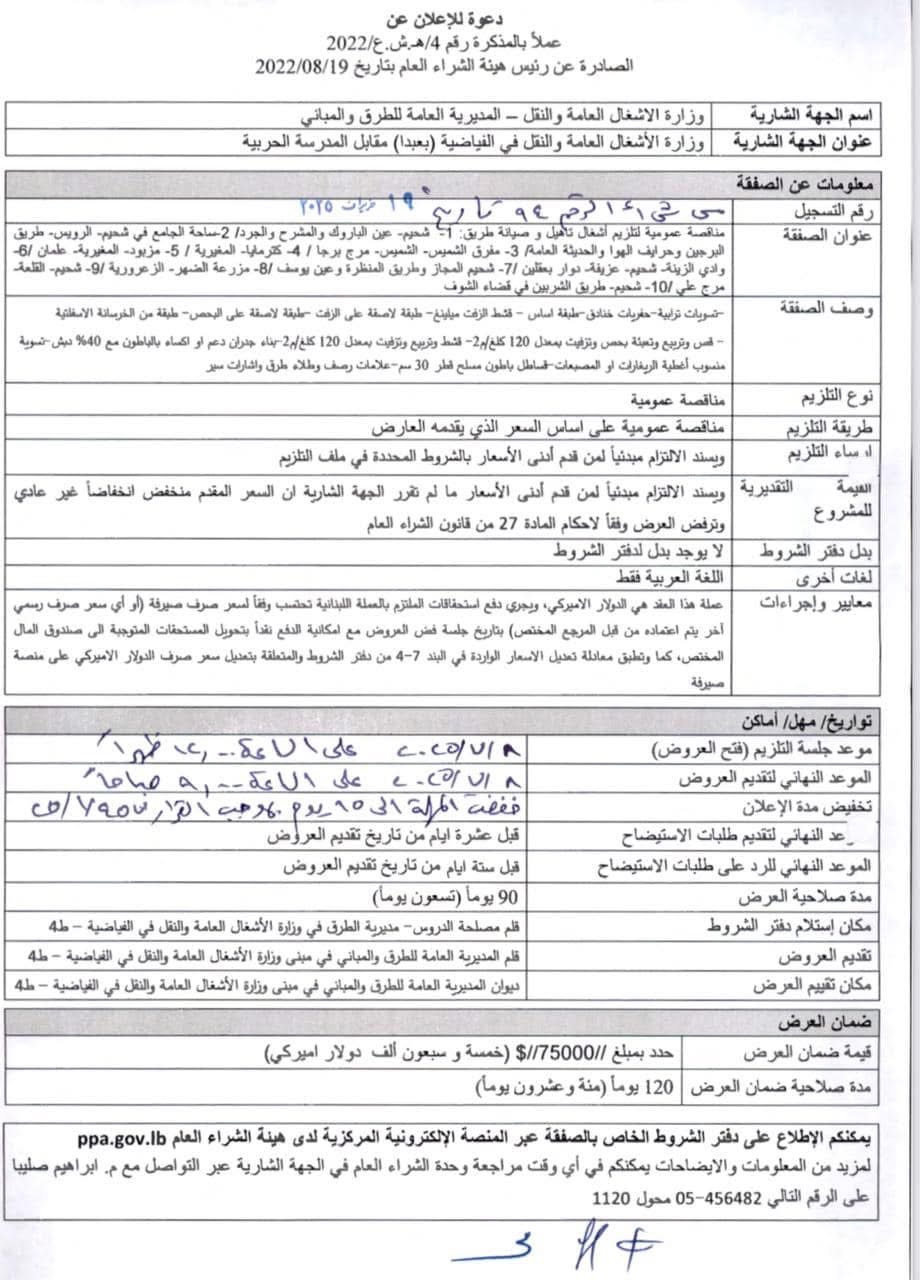 دعوة للإعلان عن
عملاً بالمذكرة رقم 4/هـ.ش.ع/2022
الصادرة عن رئيس هيئة الشراء العام بتاريخ 2022/08/19
اسم الجهة الشارية وزارة الاشغال العامة والنقل – المديرية العامة للطرق والمباني
عنوان الجهة الشارية وزارة الأشغال العامة والنقل في الفياضية (بعبدا) مقابل المدرسة الحربية
معلومات عن الصفقة
رقم التسجيل الرقم ٩٤ تاريخ ١٩ حزيران ٢٠٢٥
عنوان الصفقة مناقصة عمومية لتلزيم أشغال تأهيل و صيانة طريق: 1- شحيم- عين الباروك والمشرح والجرد/ 2-ساحة الجامع في شحيم- الرويس- طريق
البرجين وحرايف الهوا والحديثة العامة/ 3- مفرق الشميس- الشميس- مرج برجا / 4- كترمايا- المغيرية / 5- مزبود- المغيرية- علمان /6-
وادي الزينة- شحيم- عزيفة- دوار بعقلين /7- شحيم المجاز وطريق المنظرة وعين يوسف /8- مزرعة الضهر- الزعرورية /9- شحيم- القلعة-
مرج علي /10- شحيم- طريق الشربين في قضاء الشوف
وصف الصفقة -تسويات ترابية-حفريات خنادق-طبقة اساس - قشط الزفت ميلينغ- طبقة لاصقة على الزفت -طبقة لاصقة على البحص- طبقة من الخرسانة الاسفلتية
- قص وتربيع وتعبئة بحص وتزفيت بمعدل 120 كلغ/م2- قشط وتربيع وتزفيت بمعدل 120 كلغ/م2-بناء جدران دعم او اكساء بالباطون مع 40% دبش-تسوية
منسوب أغطية الريغارات او المصبعات-قساطل باطون مسلح قطر 30 سم-علامات رصف وطلاء طرق واشارات سير
نوع التلزيم مناقصة عمومية
طريقة التلزيم مناقصة عمومية على اساس السعر الذي يقدمه العارض
إرساء التلزيم ويسند الالتزام مبدئياً لمن قدم أدنى الأسعار بالشروط المحددة في ملف التلزيم
القيمة التقديرية ويسند الالتزام مبدئياً لمن قدم أدنى الأسعار ما لم تقرر الجهة الشارية ان السعر المقدم منخفض انخفاضاً غير عادي
للمشروع وترفض العرض وفقاً لاحكام المادة 27 من قانون الشراء العام
بدل دفتر الشروط لا يوجد بدل لدفتر الشروط
لغات أخرى اللغة العربية فقط
معايير وإجراءات عملة هذا العقد هي الدولار الاميركي، ويجري دفع استحقاقات الملتزم بالعملة اللبنانية تحتسب وفقاً لسعر صرف صيرفة (أو أي سعر صرف رسمي
آخر يتم اعتماده من قبل المرجع المختص) بتاريخ جلسة فض العروض مع امكانية الدفع نقداً بتحويل المستحقات المتوجبة الى صندوق المال
المختص، كما وتطبق معادلة تعديل الاسعار الواردة في البند 7-4 من دفتر الشروط والمتعلقة بتعديل سعر صرف الدولار الاميركي على منصة
صيرفة
تواريخ/ مهل/ أماكن
موعد جلسة التلزيم (فتح العروض) ٢٠٢٥/٧/٨ على الساعة ١٢,٠٠ ظهراً
الموعد النهائي لتقديم العروض ٢٠٢٥/٧/٨ على الساعة ٩,٠٠ صباحاً
تخفيض مدة الإعلان خفضت المهلة الى ١٥ يوم بموجب القرار
عد النهائي لتقديم طلبات الاستيضاح قبل عشرة ايام من تاريخ تقديم العروض
الموعد النهائي للرد على طلبات الاستيضاح قبل ستة ايام من تاريخ تقديم العروض
مدة صلاحية العرض 90 يوماً (تسعون يوماً)
مكان إستلام دفتر الشروط قلم مصلحة الدروس- مديرية الطرق في وزارة الأشغال العامة والنقل في الفياضية – ط4
تقديم العروض قلم المديرية العامة للطرق والمباني في مبنى وزارة الأشغال العامة والنقل في الفياضية – ط4
مكان تقييم العرض ديوان المديرية العامة للطرق والمباني في مبنى وزارة الأشغال العامة والنقل في الفياضية – ط4
ضمان العرض
قيمة ضمان العرض حدد بمبلغ //75000//$ (خمسة و سبعون ألف دولار اميركي)
مدة صلاحية ضمان العرض 120 يوماً (مئة وعشرون يوماً)
يمكنكم الإطلاع على دفتر الشروط الخاص بالصفقة عبر المنصة الإلكترونية المركزية لدى هيئة الشراء العام ppa.gov.lb
لمزيد من المعلومات والايضاحات يمكنكم في أي وقت مراجعة وحدة الشراء العام في الجهة الشارية عبر التواصل مع م. ابراهيم صليبا
على الرقم التالي 456482-05 محول 1120